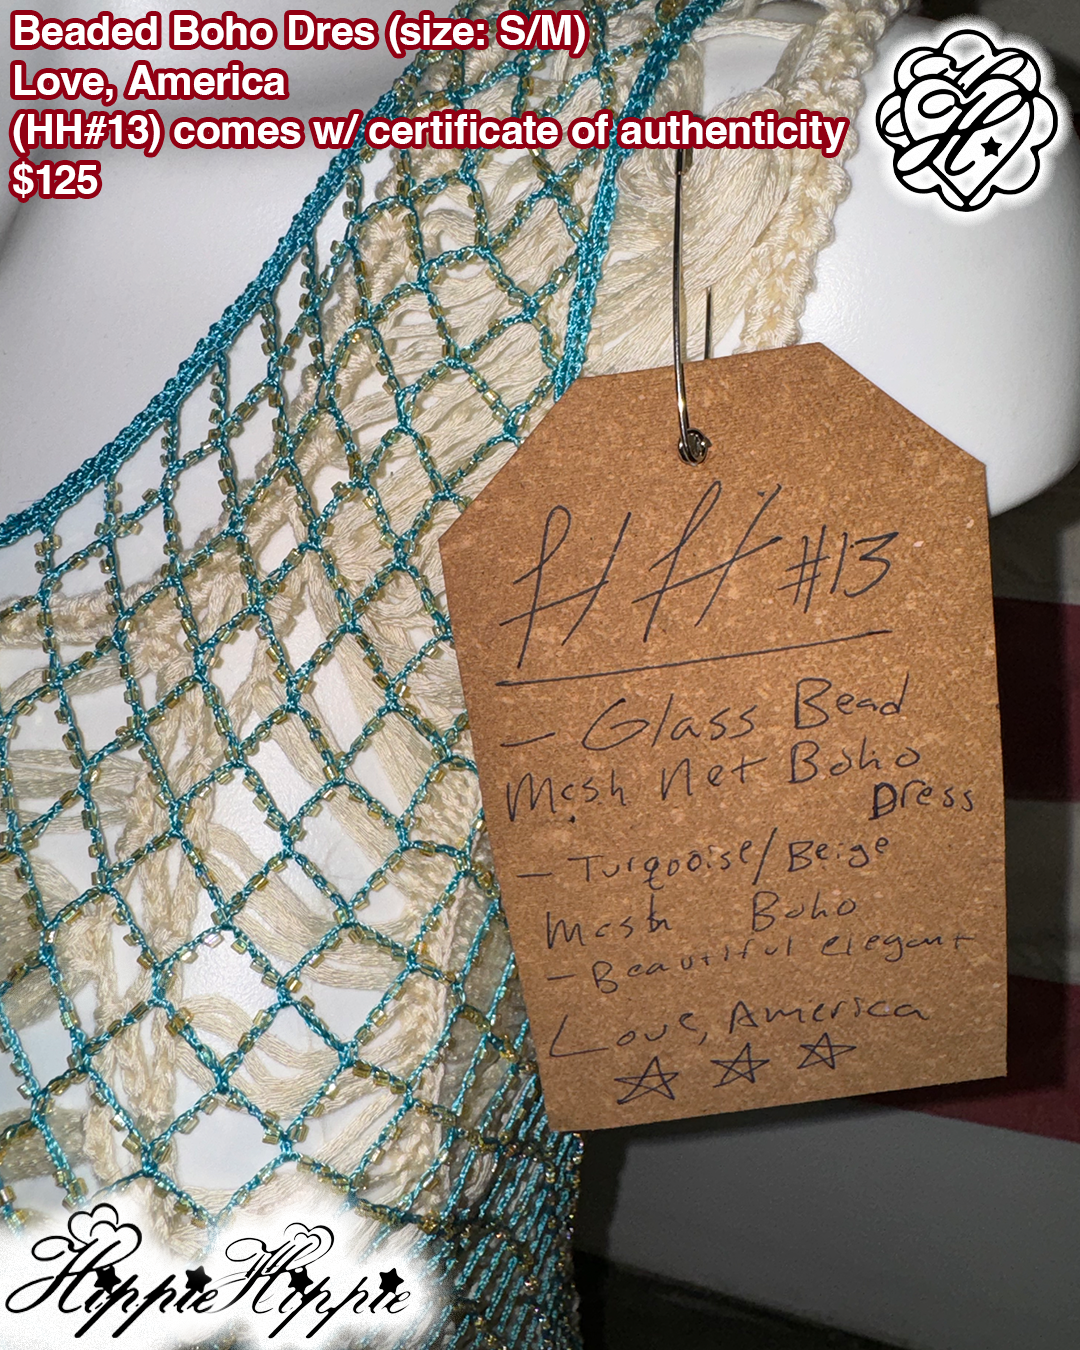 Beaded Boho Dres (size: S/M)
Love, America
(HH#13) comes w/ certificate of authenticity
$125
H
H
HH #13
- Glass Bead
Mesh Net Boho
Dress
- Turqooise/Beige
Mesh Boho
- Beautiful elegant
Love, America
HippieHippie